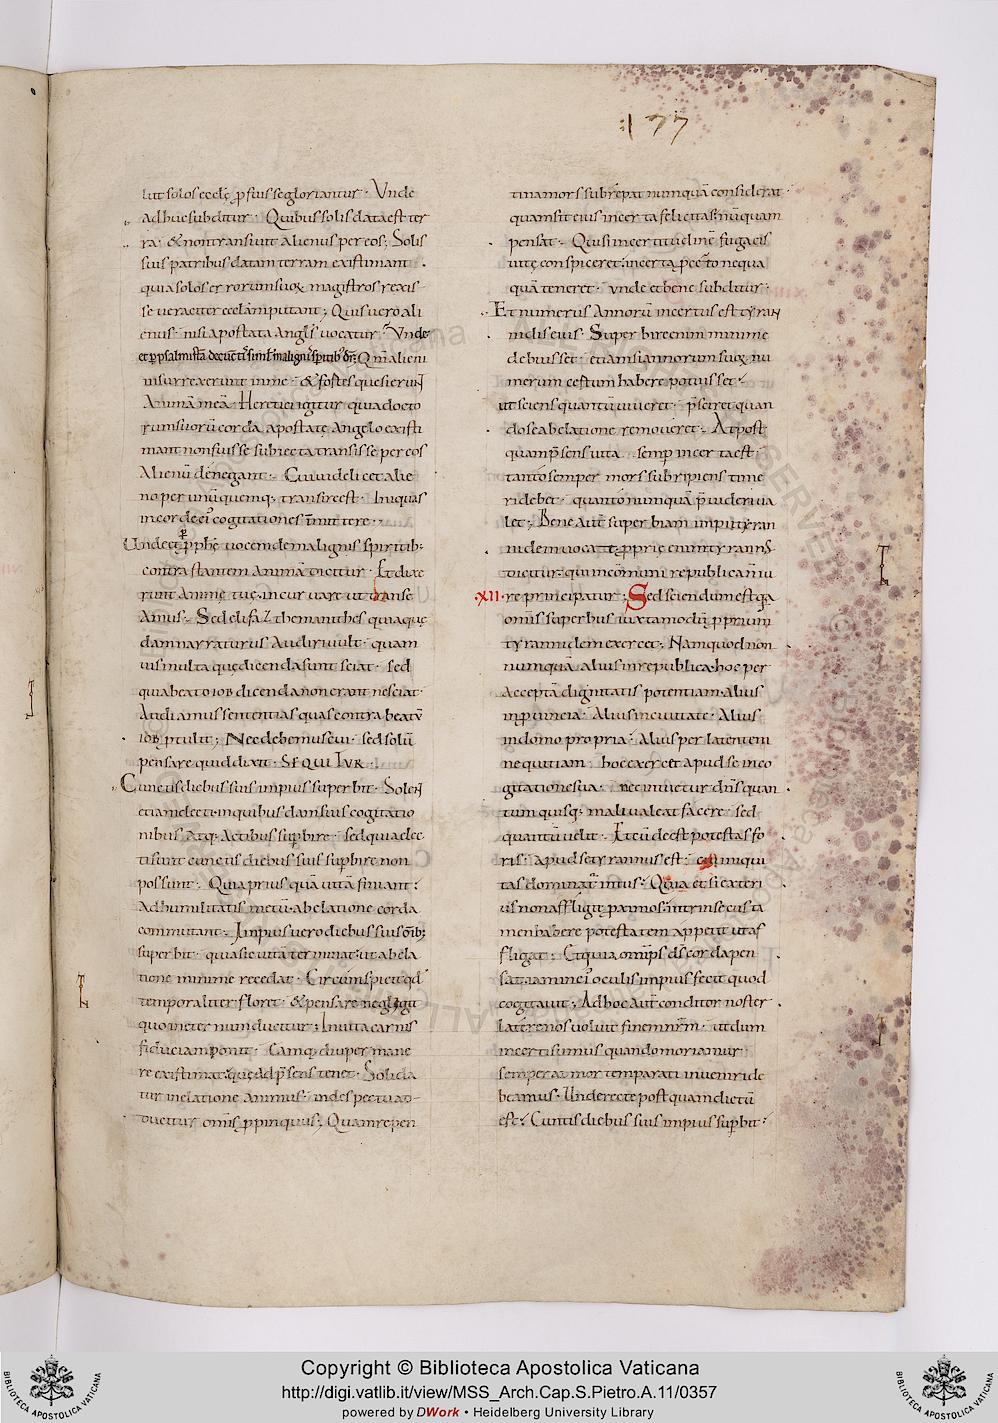 177
lut solos eccłę p̱ suis se gloriantur · Unde
adhuc subditur · Quibus solis data est ter
ra · & non transiuit alienus per eos ; Solis
suis patribus datam terram existimant ·
quia solos errorum suoꝝ magistros rexis
se ueraciter ecclām putant ; Quis uero ali
enus · nisi apostata angls uocatur · Unde
Qm̄ alieni
insurrexerunt in me · & fortes quesierunt
animā meā · Heretici igitur quia docto
rum suorū corda apostatę angelo existi
mant non fuisse subiecta transisse per eos
alienū denegant · Cui uidelicet alie
no per unūquemq; transire est · iniquas
in corde ei cogitationes īmittere ·
Unde et p̱ pphę uocem de malignis spiritib;
contrastantem animā dicitur · Et dixe
runt animę tuę · incuruare ut transe
amus · Sed elifaz themanthes quia quę
damnarraturus audiri uult · quam
uis multa quę dicenda sunt sciat · sed
quia beato iob dicenda non erant nesciat ·
Audiamus sententias quas contra beatū
iob p̱tulit ; Nec debemus cui · sed solū
pensare quid dixit · SEQUITUR ·
Cunctis diebus suis impius superbit · Solent
etiam electi · in quibusdam suis cogitatio
nibus atq; actibus sup̱bire · sed quia elec
ti sunt cunctis diebus suis sup̱bire non
possunt · Quia prius quā uitā finiant ·
ad humilitatis metū · ab elatione corda
commutant · Impius uero diebus suis omib;
superbit · quia sic uitā terminat · ut ab ela
tione minime recedat · Circumspicit qd
temporaliter floret · & pensare neglegit
quo in eternum ducitur ; In uita carnis
fiduciam ponit · Eamq; diu permane
re existimat · quę ad p̄sens tenet · Solida
tur in elatione animus · in despectū ad
ducitur omis p̱pinquus · Quam repen
tina mors subrepat nunquā considerat ·
quam sit eius incerta felicitas · nūquam
pensat · Qui si incertitudinē fugacis
uitę conspiceret · incerta p̱ certo nequa
quā teneret · unde et bene subditur ·
Et numerus annorū incertus est tyran
nidis eius · Superbire enim minime
debuisset · etiam si annorum suoꝝ nu
merum certum habere potuisset ·
ut sciens quantū uiueret · p̄sciret quan
do se ab elatione remoueret · At post
quam p̄sens uita semp incerta est ·
tanto semper mors subripiens time
ri debet · quanto nunquā p̄uideri ua
let ; Bene aut̄ superbiam impii tyran
nidem uocat · p̱prie enim tyrann
dicitur · qui in cōmuni republica n̄ iu
·XII· re principatur ; Sed sciendum est qa
omis superbus iuxta modū p̱prium
tyrannidem exercet · Nam quod non
nunquā alius in republica · hoc per
acceptā dignitatis potentiam · Alius
in p̱uincia · Alius in ciuitate · Alius
in domo propria · Alius per latentem
nequitiam · hoc exercet apud se in co
gitatione sua · nec intuetur dn̄s quan
tum quisq; mali ualeat facere · sed
quantū uelit · Et cū deest potestas fo
ris · apud se tyrannus est · cui iniqui
tas dominat intus · Quia etsi exteri
us non affligit p̱ximos · intrinsecus ta
men habere potestatem appetit ut af
fligat · Et quia omp̄s ds̄ corda pen
sat · iam in ei oculis impius fecit quod
cogitauit ; Ad hoc aut̄ conditor noster
latere nos uoluit finem nrm̄ · ut dum
incerti sumus quando moriamur ·
semper ad mortem parati inueniri de
beamus · Unde recte post quam dictū
est · Cuntis diebus suis impius sup̱bit ·
Copyright © Biblioteca Apostolica Vaticana
http://digi.vatlib.it/view/MSS_Arch.Cap.S.Pietro.A.11/0357
powered by DWork • Heidelberg University Library
BIBLIOTECA APOSTOLICA VATICANA
BIBLIOTECA APOSTOLICA VATICANA